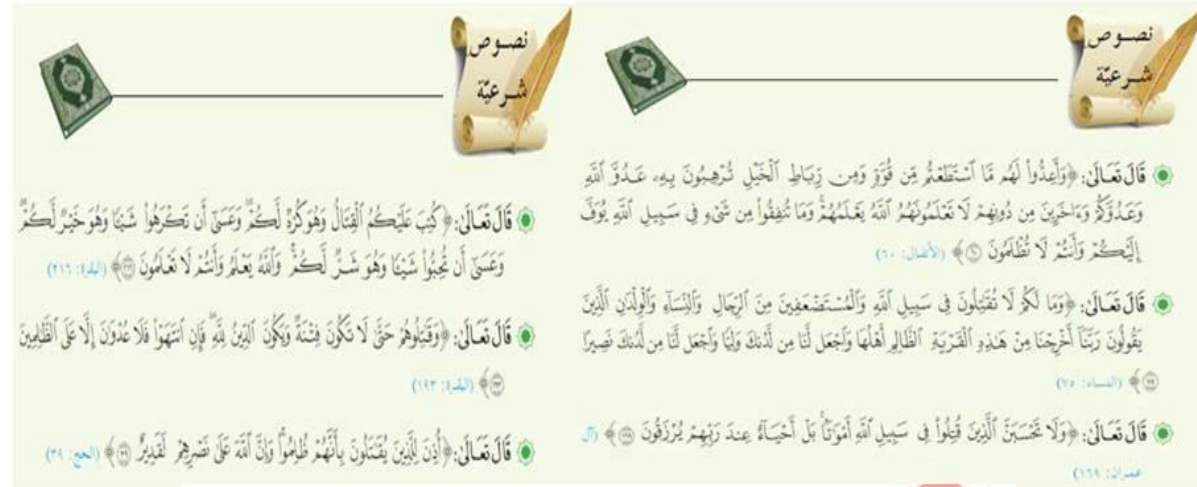 نصوص
شرعيّة
قَالَ تَعَالَىٰ: ﴿وَأَعِدُّوا۟ لَهُم مَّا ٱسْتَطَعْتُم مِّن قُوَّةٍ وَمِن رِّبَاطِ ٱلْخَيْلِ تُرْهِبُونَ بِهِۦ عَدُوَّ ٱللَّهِ
وَعَدُوَّكُمْ وَءَاخَرِينَ مِن دُونِهِمْ لَا تَعْلَمُونَهُمُ ٱللَّهُ يَعْلَمُهُمْ وَمَا تُنفِقُوا۟ مِن شَىْءٍ فِى سَبِيلِ ٱللَّهِ يُوَفَّ
إِلَيْكُمْ وَأَنتُمْ لَا تُظْلَمُونَ ۝٦٠﴾ (الأنفال: ٦٠)
قَالَ تَعَالَىٰ: ﴿وَمَا لَكُمْ لَا تُقَٰتِلُونَ فِى سَبِيلِ ٱللَّهِ وَٱلْمُسْتَضْعَفِينَ مِنَ ٱلرِّجَالِ وَٱلنِّسَآءِ وَٱلْوِلْدَٰنِ ٱلَّذِينَ
يَقُولُونَ رَبَّنَآ أَخْرِجْنَا مِنْ هَٰذِهِ ٱلْقَرْيَةِ ٱلظَّالِمِ أَهْلُهَا وَٱجْعَل لَّنَا مِن لَّدُنكَ وَلِيًّا وَٱجْعَل لَّنَا مِن لَّدُنكَ نَصِيرًا
۝٧٥﴾ (النساء: ٧٥)
قَالَ تَعَالَىٰ: ﴿وَلَا تَحْسَبَنَّ ٱلَّذِينَ قُتِلُوا۟ فِى سَبِيلِ ٱللَّهِ أَمْوَٰتًۢا بَلْ أَحْيَآءٌ عِندَ رَبِّهِمْ يُرْزَقُونَ ۝١٦٩﴾ (آل
عمران: ١٦٩)
نصوص
شرعيّة
قَالَ تَعَالَىٰ: ﴿كُتِبَ عَلَيْكُمُ ٱلْقِتَالُ وَهُوَ كُرْهٌ لَّكُمْ وَعَسَىٰٓ أَن تَكْرَهُوا۟ شَيْـًٔا وَهُوَ خَيْرٌ لَّكُمْ
وَعَسَىٰٓ أَن تُحِبُّوا۟ شَيْـًٔا وَهُوَ شَرٌّ لَّكُمْ وَٱللَّهُ يَعْلَمُ وَأَنتُمْ لَا تَعْلَمُونَ ۝٢١٦﴾ (البقرة: ٢١٦)
قَالَ تَعَالَىٰ: ﴿وَقَٰتِلُوهُمْ حَتَّىٰ لَا تَكُونَ فِتْنَةٌ وَيَكُونَ ٱلدِّينُ لِلَّهِ فَإِنِ ٱنتَهَوْا۟ فَلَا عُدْوَٰنَ إِلَّا عَلَى ٱلظَّٰلِمِينَ
۝١٩٣﴾ (البقرة: ١٩٣)
قَالَ تَعَالَىٰ: ﴿أُذِنَ لِلَّذِينَ يُقَٰتَلُونَ بِأَنَّهُمْ ظُلِمُوا۟ وَإِنَّ ٱللَّهَ عَلَىٰ نَصْرِهِمْ لَقَدِيرٌ ۝٣٩﴾ (الحج: ٣٩)